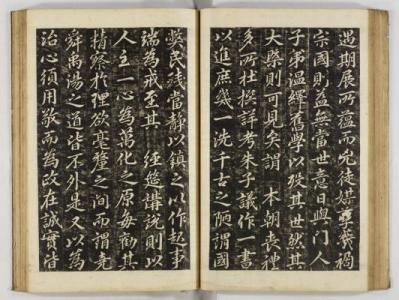 遇期展所蘊而先徒媒孽賈禍
宗國則益無當世意日與門人
子弟溫繹舊學以畢其世然其
大槩則可見矣謂 本朝喪禮
多所杜撰詳考朱子議作一書
以進庶幾一洗千古之陋謂國
與民殘當靜以鎮之以作起事
端為戒至其 經筵講說則以
人主一心為萬化之原每勸其
精察於理欲毫釐之間而謂堯
舜禹湯之道皆不外是又以為
治心須用敬而為政在誠實皆